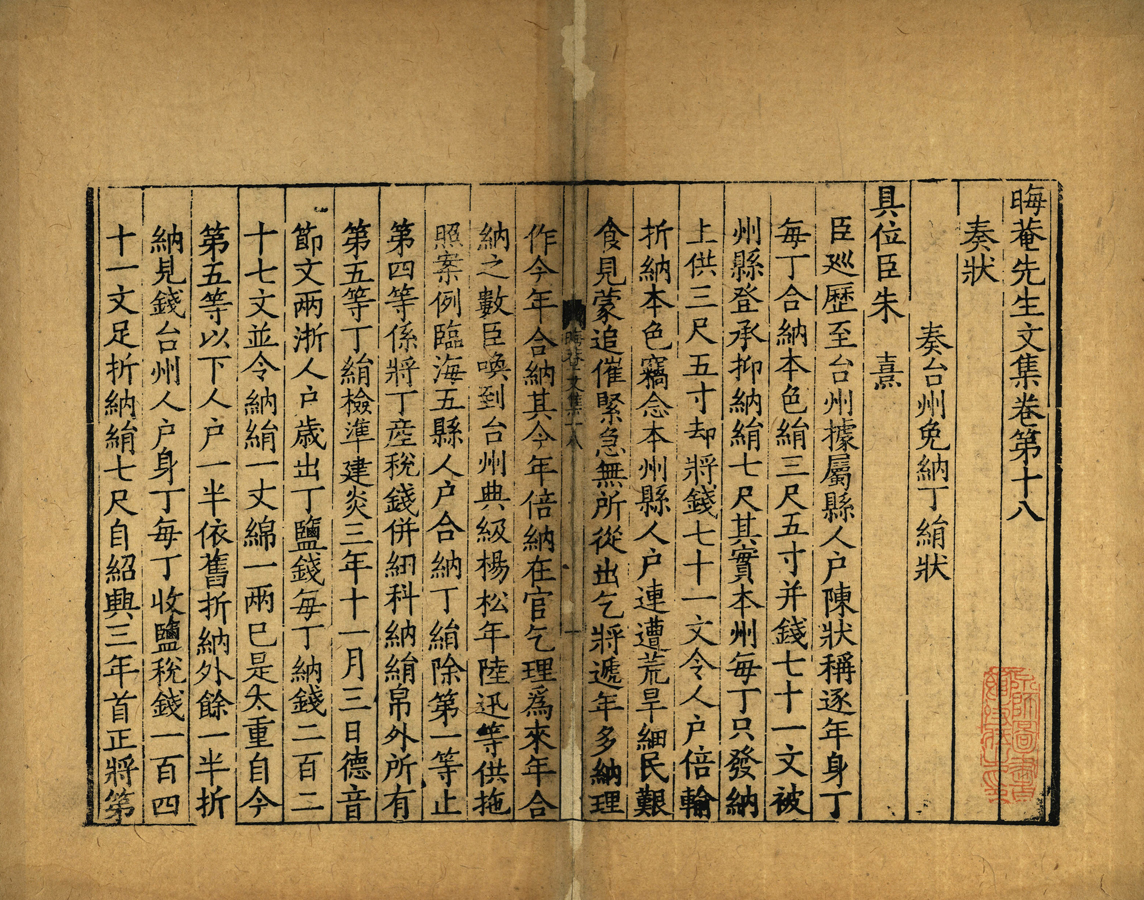 晦菴先生文集卷第十八
奏狀
奏台州免納丁絹狀
具位臣朱　熹
臣廵歷至台州據屬縣人户陳狀稱逐年身丁
每丁合納本色絹三尺五寸并錢七十一文被
州縣登承抑納絹七尺其實本州每丁只發納
上供三尺五寸却將錢七十一文令人户倍輸
折納本色竊念本州縣人户連遭荒旱細民艱
食見蒙追催緊急無所從出乞將遞年多納理
晦菴文集十八
一
作今年合納其今年倍納在官乞理爲來年合
納之數臣喚到台州典級楊松年陸迅等供拖
照案例臨海五縣人户合納丁絹除第一等止
第四等係將丁産稅錢併紐科納絹帛外所有
第五等丁絹檢準建炎三年十一月三日德音
節文兩浙人户歲出丁鹽錢每丁納錢二百二
十七文並令納絹一丈綿一兩已是太重自今
第五等以下人户一半依舊折納外餘一半折
納見錢台州人户身丁每丁收鹽稅錢一百四
十一文足折納絹七尺自紹興三年首正將第